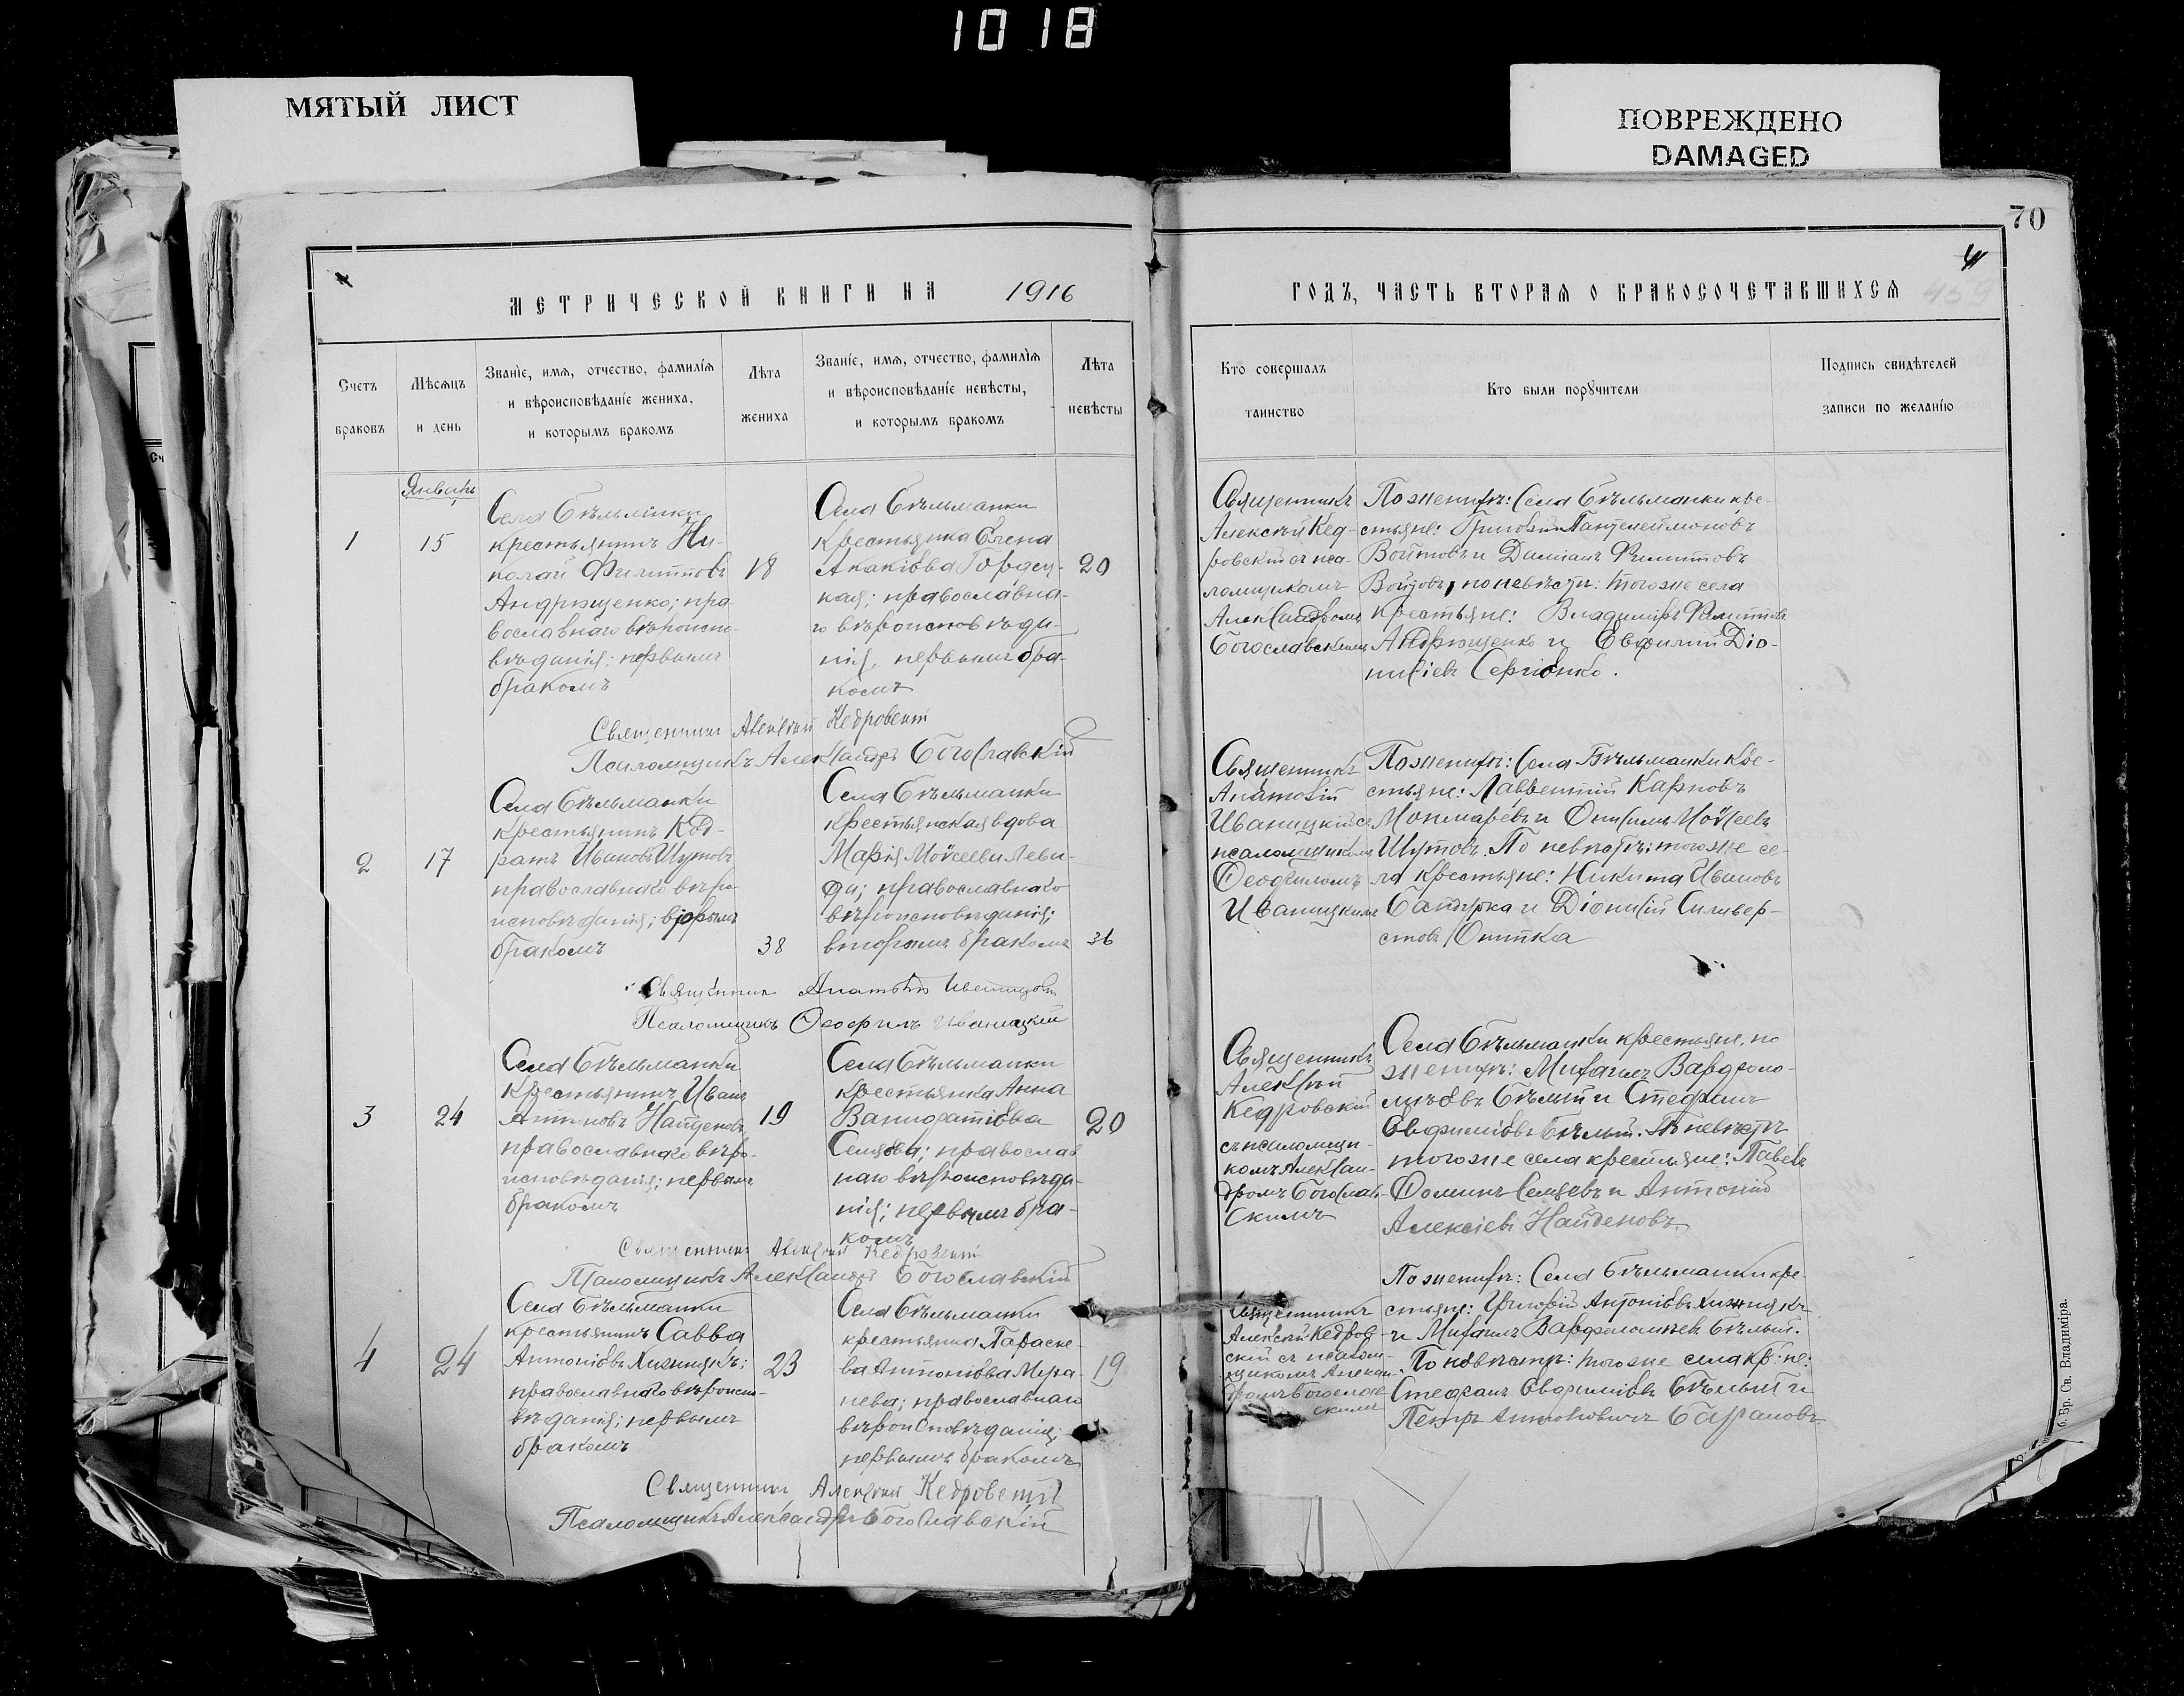 1018
МЯТЫЙ ЛИСТ
ПОВРЕЖДЕНО
DAMAGED
70
4
459
МЕТРИЧЕСКОЙ КНИГИ НА 1916
ГОДЪ, ЧАСТЬ ВТОРАЯ О БРАКОСОЧЕТАВШИХСЯ
Счетъ
браковъ
Мѣсяцъ
и день
Званіе, имя, отчество, фамилія
и вѣроисповѣданіе жениха,
и которымъ бракомъ
Лѣта
жениха
Званіе, имя, отчество, фамилія
и вѣроисповѣданіе невѣсты,
и которымъ бракомъ
Лѣта
невѣсты
Кто совершалъ
таинство
Кто были поручители
Подпись свидѣтелей
записи по желанію
Январь
1
15
Села Бѣльманки
крестьянинъ Ни-
колай Филипповъ
Андрющенко; пра-
вославнаго вѣроиспо-
вѣданія; первымъ
бракомъ
18
Села Бѣльманки
крестьянка Елена
Акакіева
кая; православна-
го вѣроисповѣда-
нія, первымъ бра-
комъ
20
Священникъ
Алексѣй Кед-
ровскій съ пса-
ломщикомъ
Александромъ
Богославскимъ
По женихѣ: Села Бѣльманки кре-
стьяне: Григорій Пантелеймоновъ
Войтовъ и Даміанъ Филипповъ
Войтовъ, по невѣстѣ: того же села
крестьяне: Владиміръ Филипповъ
Андрющенко и Евфимій Діо-
нисіевъ Сергіенко.
Священникъ Алексѣй Кедровскій
Псаломщикъ Александръ Богославскій
2
17
Села Бѣльманки
крестьянинъ Код-
ратъ Ивановъ Шутовъ
православнаго вѣро-
исповѣданія; вторымъ
бракомъ
38
Села Бѣльманки
крестьянская вдова
Марія Моѵсеева Леви-
да; православнаго
вѣроисповѣданія;
вторымъ бракомъ
36
Священникъ
Анатолій
Иваницкій съ
псаломщикомъ
Ѳеофиломъ
Иваницкимъ
По женихѣ: Села Бѣльманки кре-
стьяне: Лаврентій Карповъ
и Онисимъ Моѵсеевъ
Шутовъ. По невѣстѣ: того же се-
ла крестьяне: Никита Ивановъ
и Діонисій Сильвер-
стовъ
Священникъ Анатолій Иваницкій
Псаломщикъ Ѳеофилъ Иваницкій
3
24
Села Бѣльманки
крестьянинъ Иванъ
Антоновъ Найденовъ
православнаго вѣро-
исповѣданія; первымъ
бракомъ
19
Села Бѣльманки
крестьянка Анна
православ
наго вѣроисповѣда-
нія; первымъ бра-
комъ
20
Священникъ
Алексѣй
Кедровскій
съ псаломщи-
комъ Алексан-
дромъ Богослав-
скимъ
Села Бѣльманки крестьяне, по
женихѣ: Михаилъ Варфоло-
мѣевъ Бѣлый и Стефанъ
Евфиміевъ Бѣлый. По невѣстѣ
того же села крестьяне: Павелъ
Ѳоминъ Семцевъ и Антоній
Алексіевъ Найденовъ.
Священникъ Алексѣй Кедровскій
Псаломщикъ Александръ Богославскій
4
24
Села Бѣльманки
крестьянинъ Савва
Антоніевъ Хижнякъ;
православнаго вѣроиспо-
вѣданія; первымъ
бракомъ
23
Села Бѣльманки
крестьянка Параске-
ва Антоніева
нева; православнаго
вѣроисповѣданія;
первымъ бракомъ
19
Священникъ
Алексѣй Кедров-
скій съ псалом-
щикомъ Алексан-
дромъ Богослав
скимъ
По женихѣ: Села Бѣльманки кре-
стьяне: Григорій Антоніевъ Хижнякъ
и Михаилъ Варфоломѣевъ Бѣлый.
По невѣстѣ: того же села кр:не:
Стефанъ Евфиміевъ Бѣлый и
Петръ Антоновичъ Барановъ
Священникъ Алексѣй Кедровскій
Псаломщикъ Александръ Богославскій
б. Бр. Св. Владиміра.